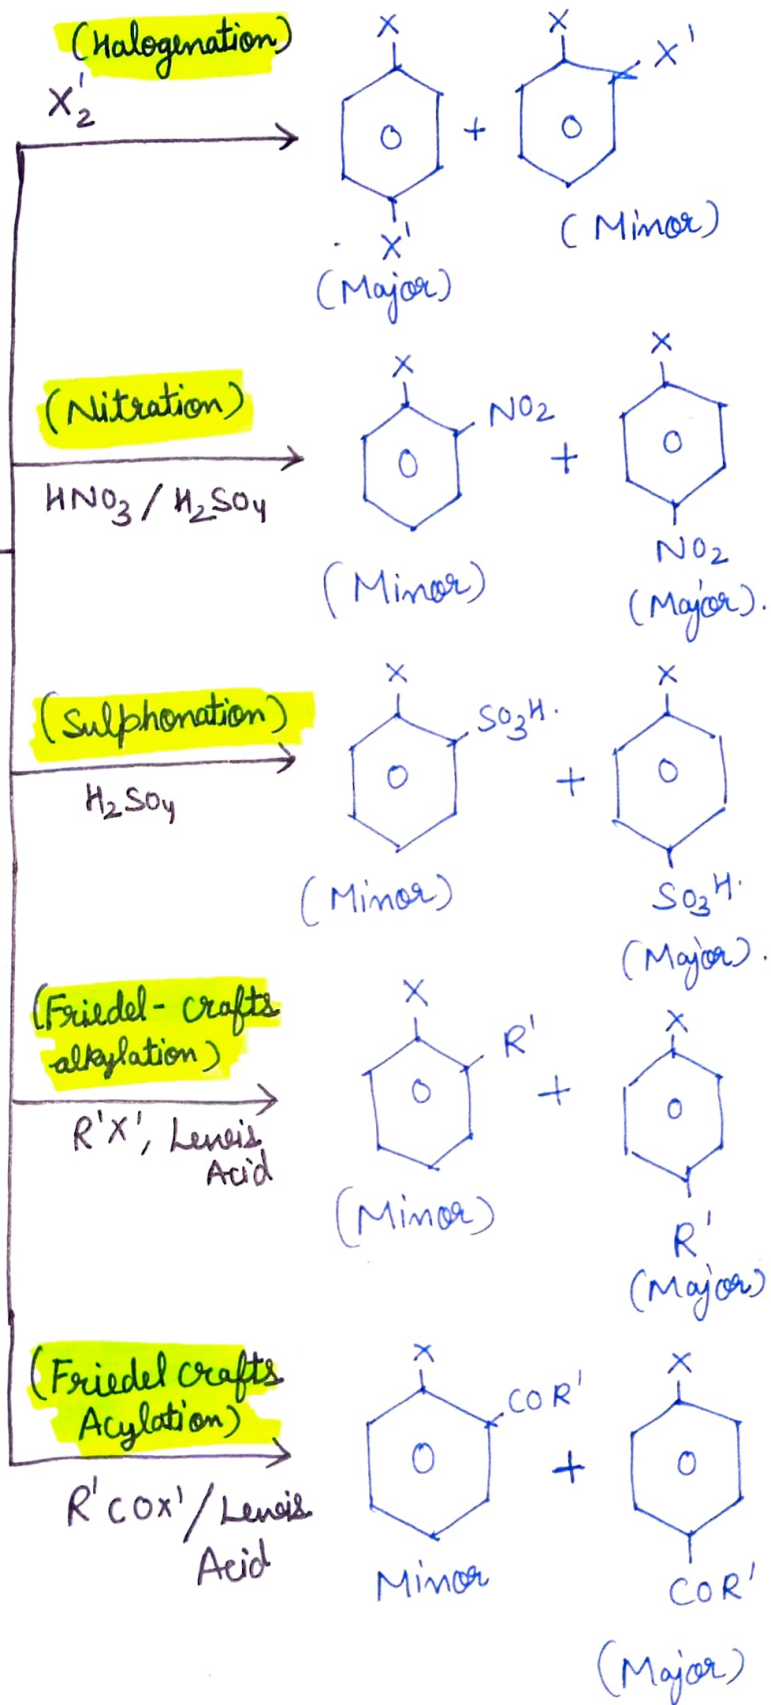 (Halogenation)
X'₂
X
X'
(Major)
+
X
X'
(Minor)
(Nitration)
HNO₃ / H₂SO₄
X
NO₂
(Minor)
+
X
NO₂
(Major).
(Sulphonation)
H₂SO₄
X
SO₃H.
(Minor)
+
X
SO₃H.
(Major).
(Friedel-crafts
alkylation)
R'X', Lewis
Acid
X
R'
(Minor)
+
X
R'
(Major)
(Friedel crafts
Acylation)
R'COX'/Lewis
Acid
X
COR'
Minor
+
X
COR'
(Major)